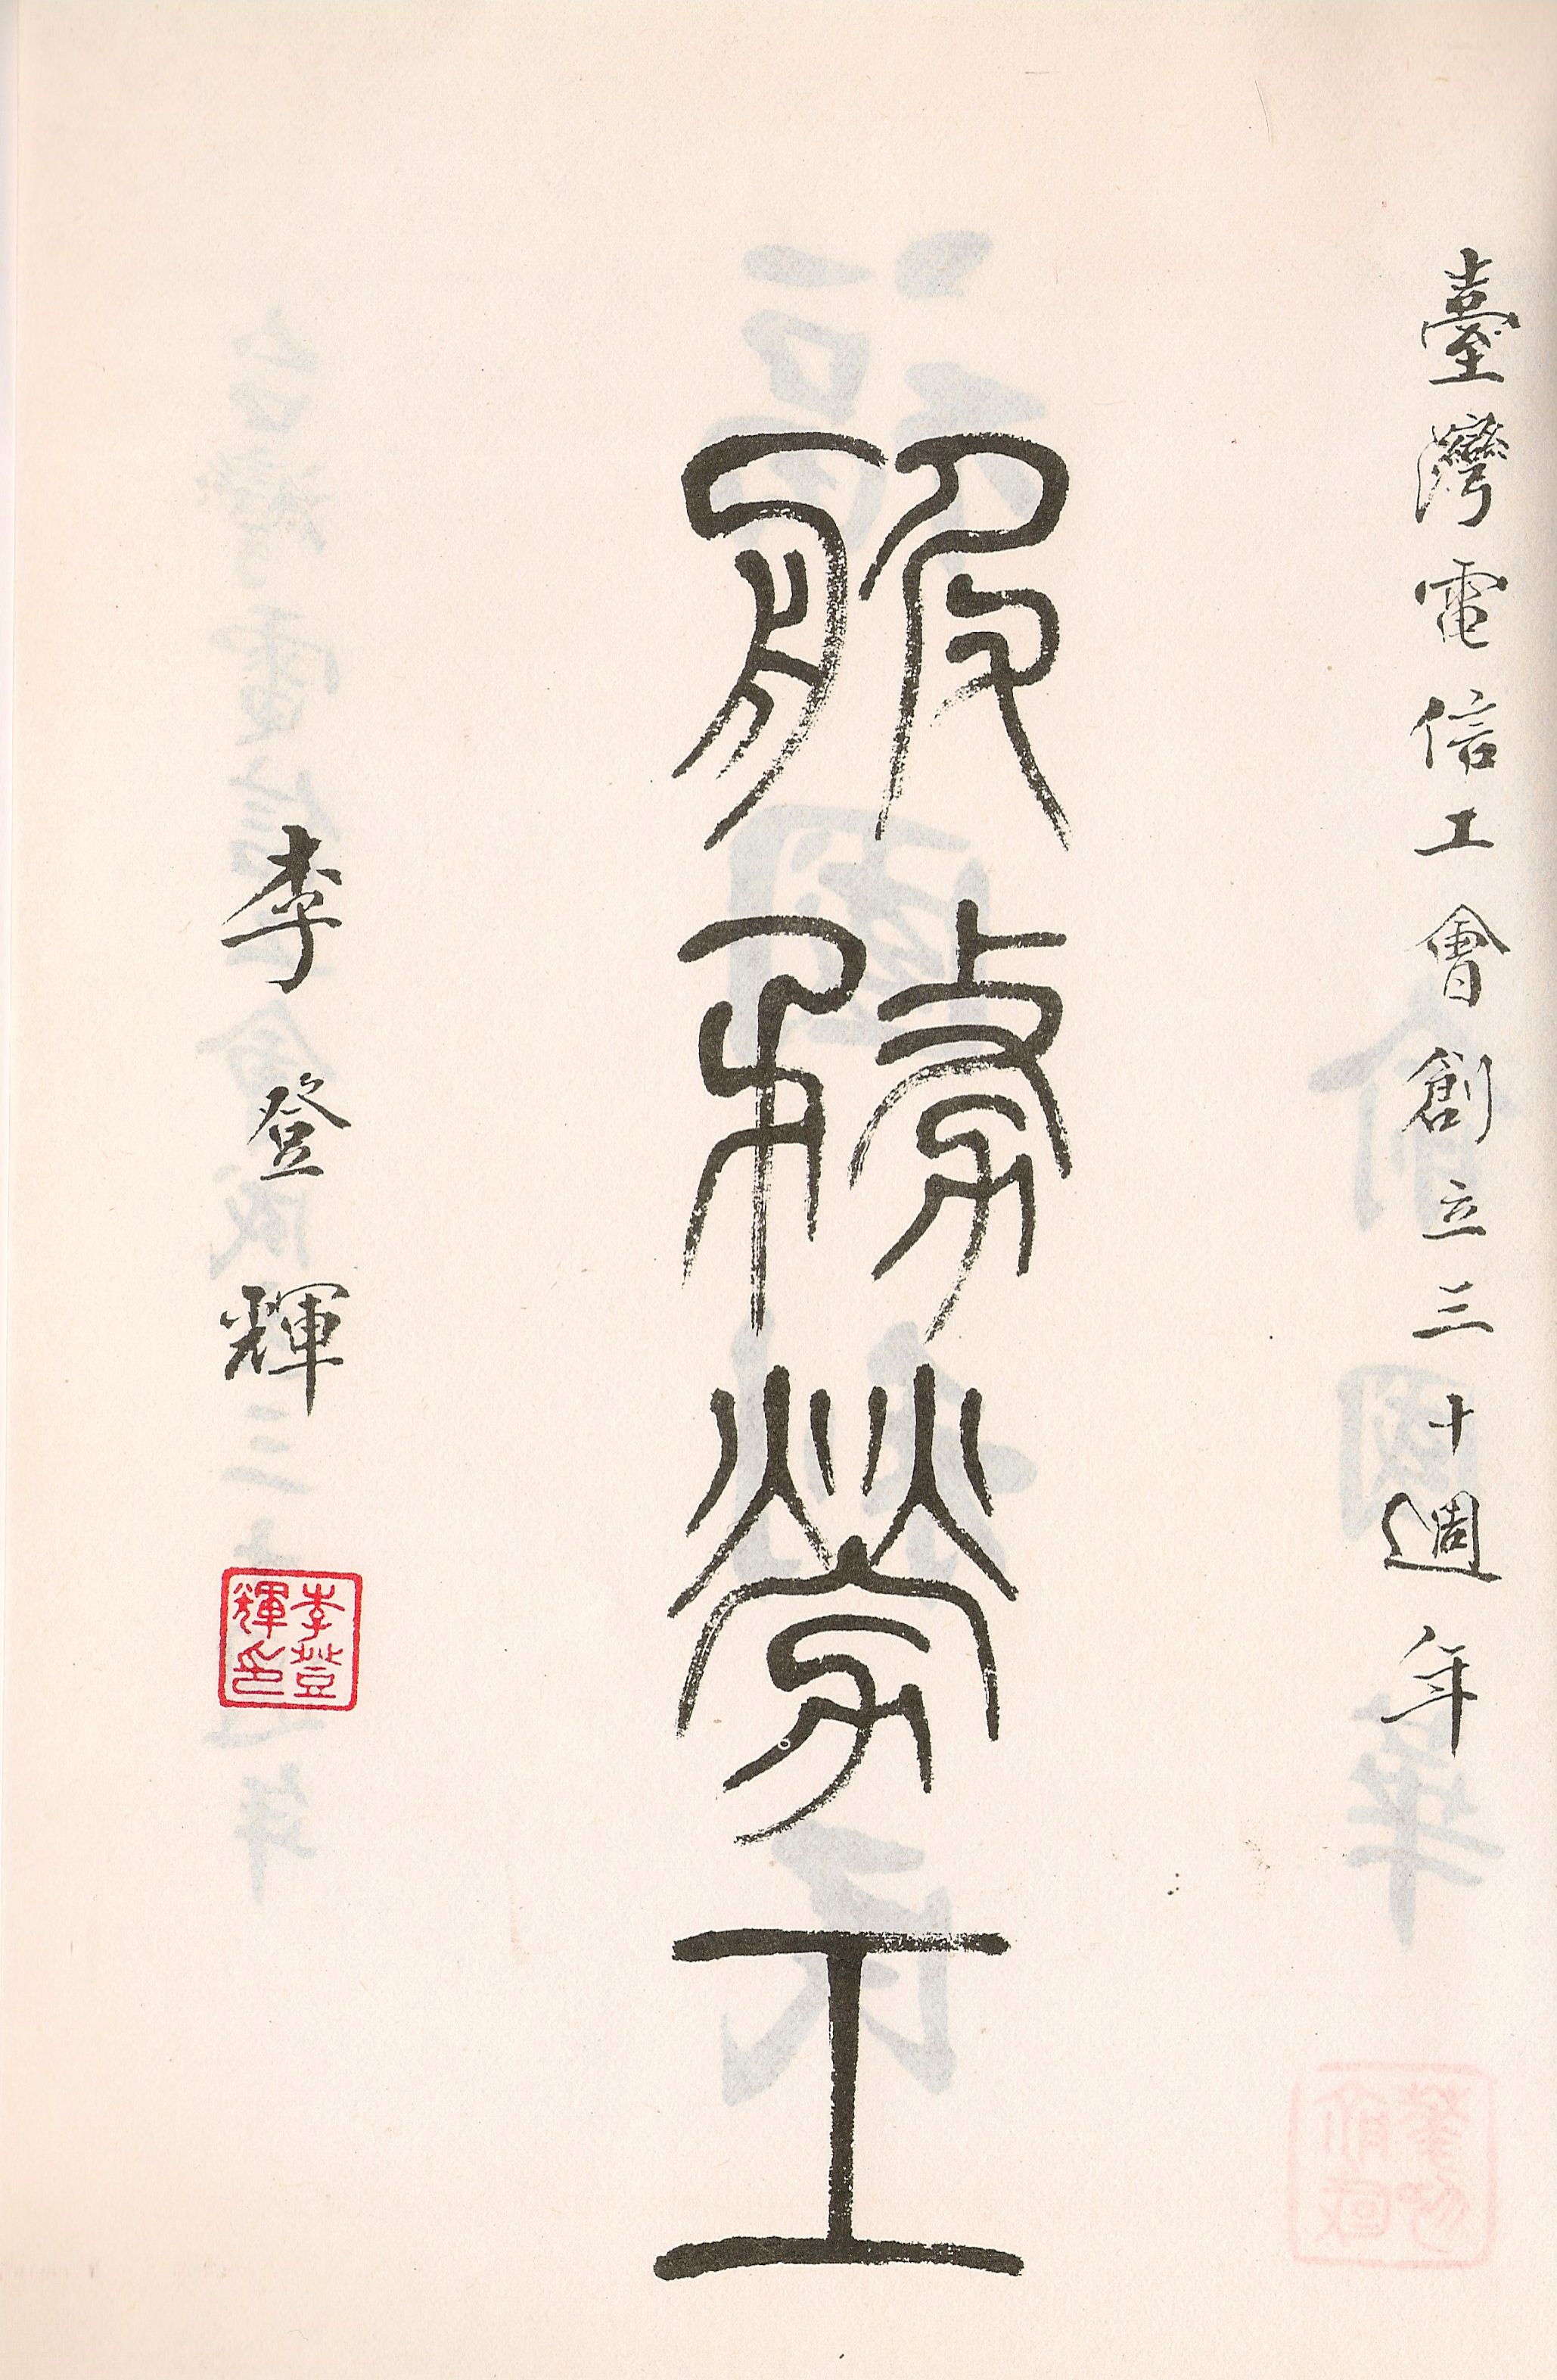 臺灣電信工會創立三十週年
服務勞工
李登輝
李登輝印